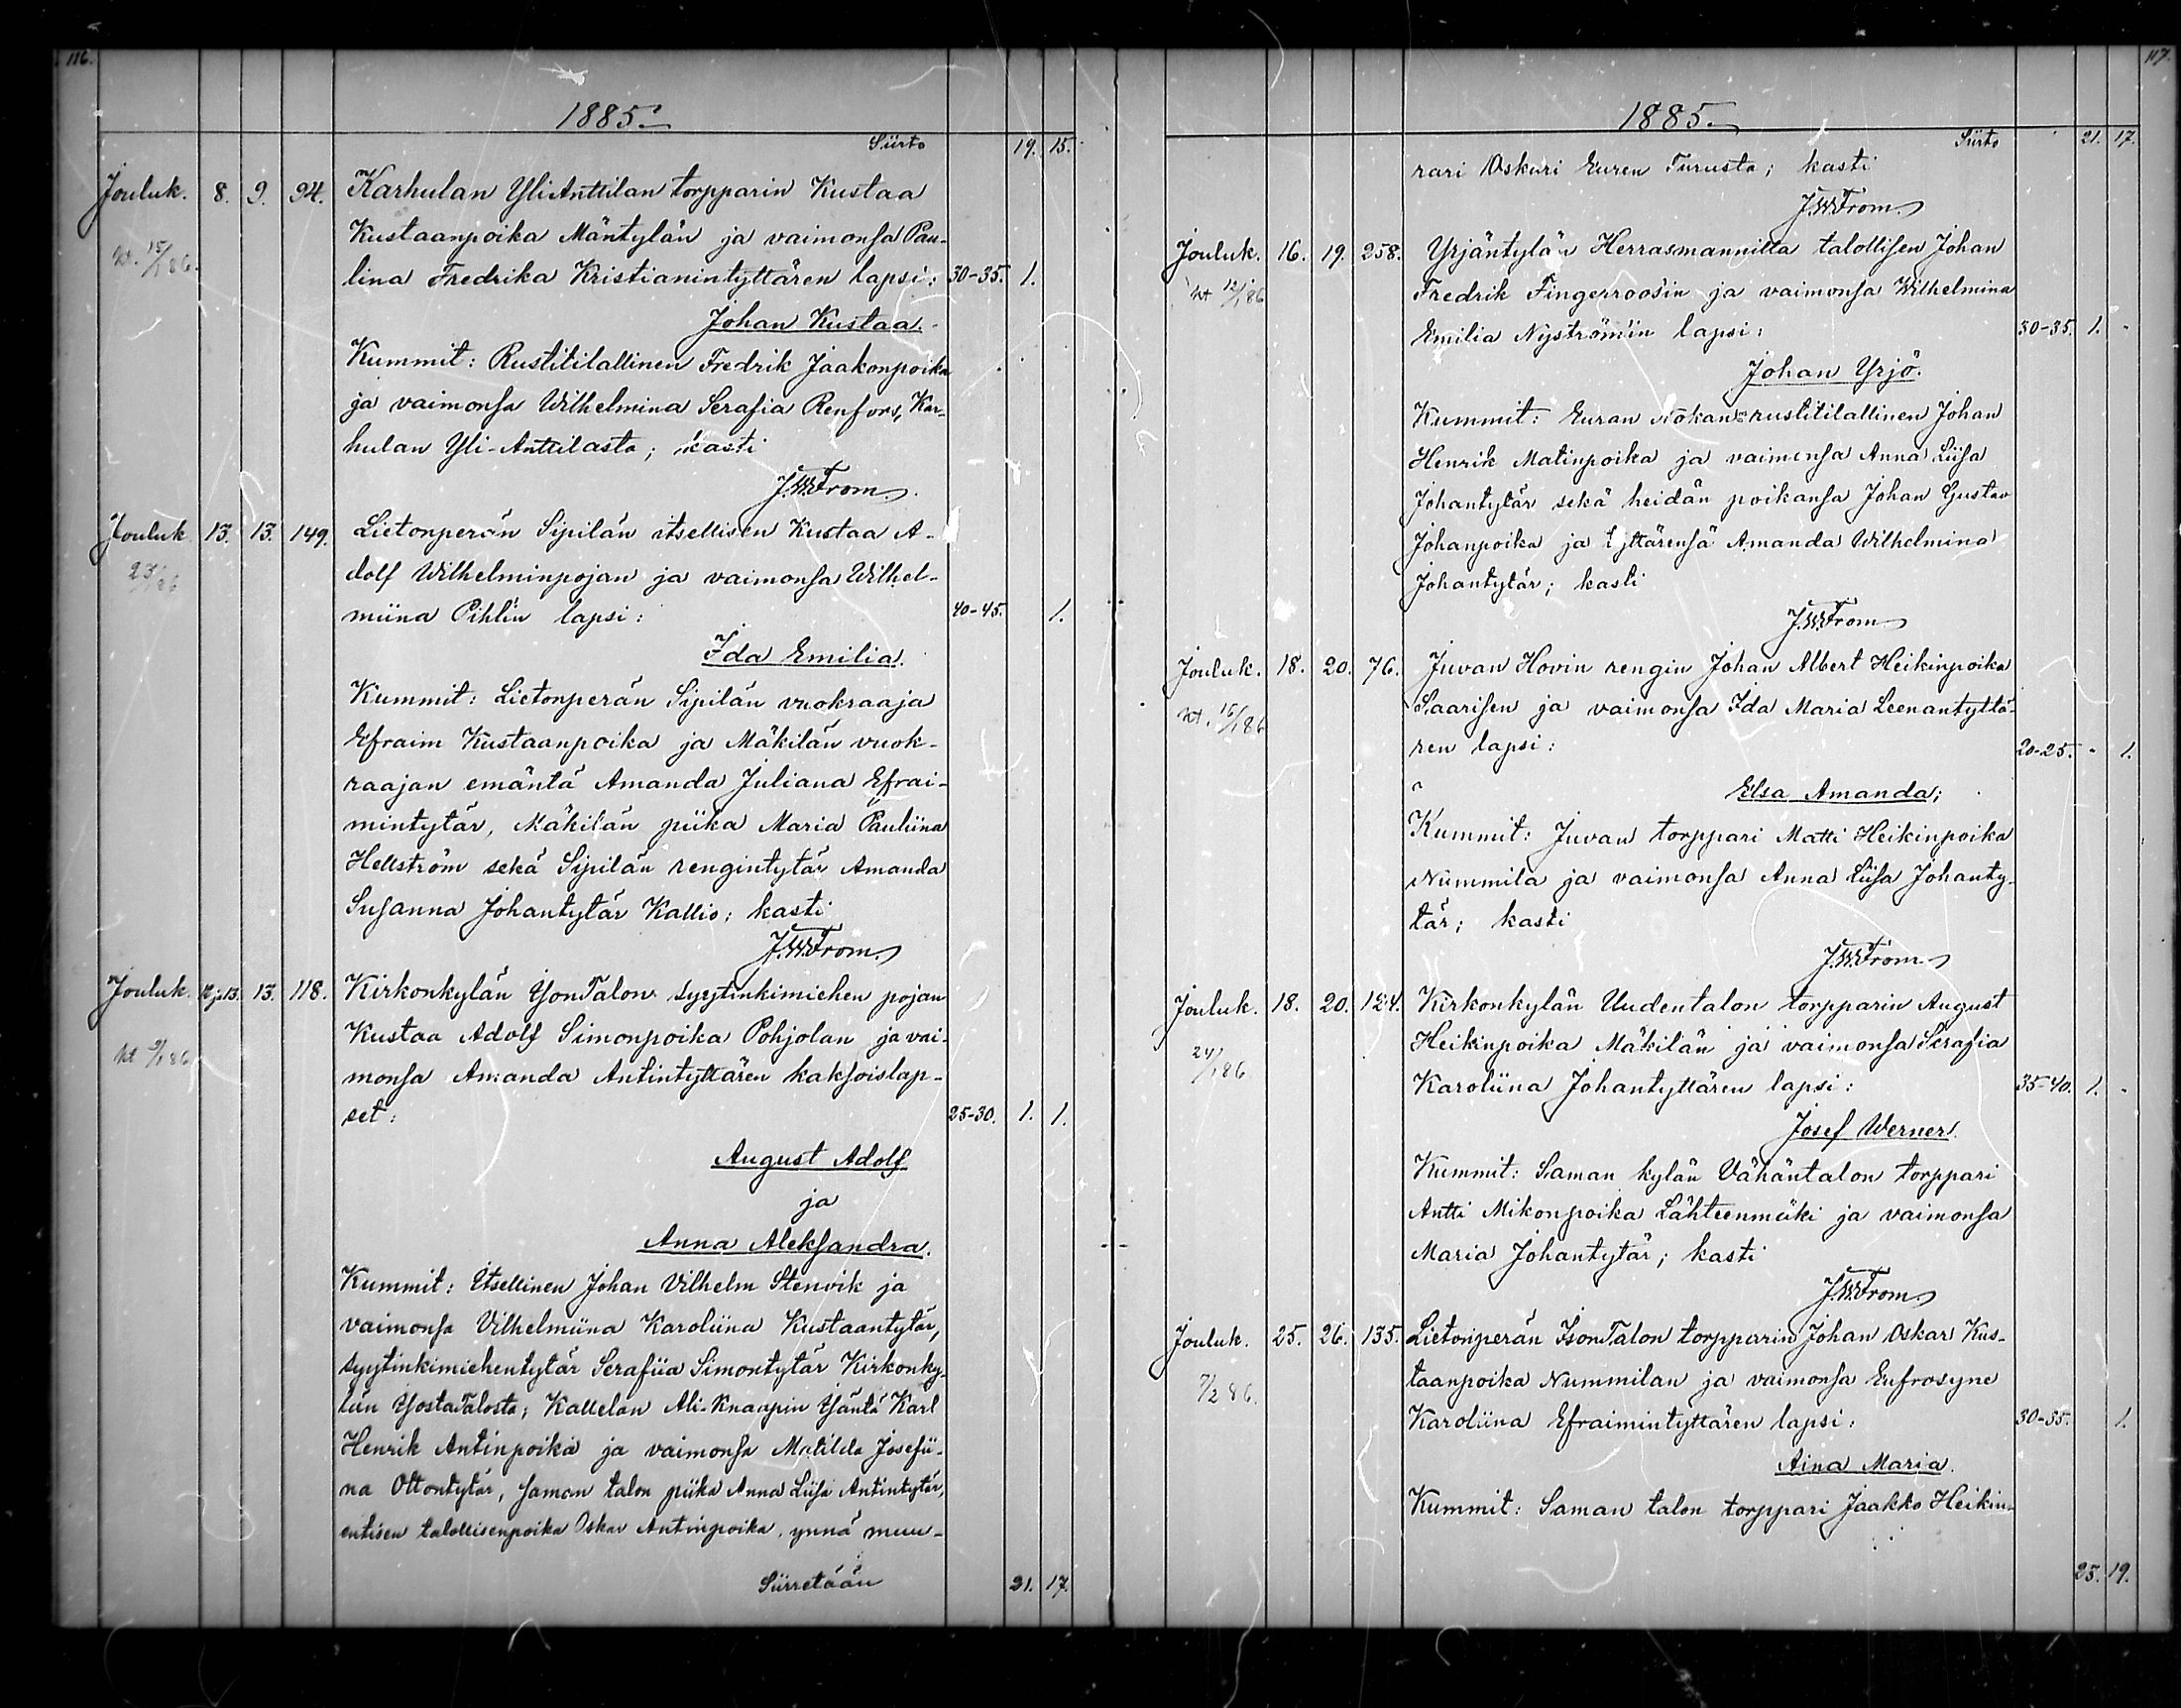 116.
1885.
Siirto 19. 15.
Jouluk. 8. 9. 94. Karhulan YliAnttilan torpparin Kustaa
Kustaanpoika Mäntylän ja vaimonsa Pau-
kt. 15/1 86.
lina Fredrika Kristianintyttären lapsi: 30-35. 1.
Johan Kustaa.
Kummit: Rustitilallinen Fredrik Jaakonpoika
ja vaimonsa Wilhelmina Serafia Renfors, Kar-
hulan Yli-Anttilasta; kasti
J.W.From.
Jouluk. 13. 13. 149. Lietonperän Sipilän itsellisen Kustaa A-
dolf Wilhelminpojan ja vaimonsa Wilhel-
23/1 86
miina Pihl'in lapsi: 40-45. 1.
Ida Emilia.
Kummit: Lietonperän Sipilän vuokraaja
Efraim Kustaanpoika ja Mäkilän vuok-
raajan emäntä Amanda Juliana Efrai-
mintytär, Mäkilän piika Maria Pauliina
Hellström sekä Sipilän rengintytär Amanda
Susanna Johantytär Kallio; kasti
J.W.From.
Jouluk. 12 ja 13. 13. 118. Kirkonkylän YsonTalon syytinkimiehen pojan
Kustaa Adolf Simonpoika Pohjolan ja vai-
kt 9/1 86
monsa Amanda Antintyttären kaksoislap-
set: 25-30. 1. 1.
August Adolf
ja
Anna Aleksandra.
Kummit: Itsellinen Johan Vilhelm Stenvik ja
vaimonsa Vilhelmiina Karoliina Kustaantytär,
syytinkimiehentytär Serafiia Simontytär Kirkonky-
län YsostaTalosta; Kallelan Ali-Knaapin Isäntä Karl
Henrik Antinpoika ja vaimonsa Matilda Josefii-
na Ottontytär, saman talon piika Anna Liisa Antintytär,
entisen talollisenpoika Oskar Antinpoika, ynnä muu-
Siirretään 21. 17.
117.
1885.
Siirto 21. 17.
rari Oskari Euren Turusta; kasti
J.W.From.
Jouluk. 16. 19. 258. Yrjäntylän Herrasmannilta talollisen Johan
kt 12/1 86
Fredrik Fingerroos'in ja vaimonsa Wilhelmina
Emilia Nyström'in lapsi: 30-35. 1. -
Johan Yrjö.
Kummit: Euran Nokan rustitilallinen Johan
Henrik Matinpoika ja vaimonsa Anna Liisa
Johantytär sekä heidän poikansa Johan Gustav
Johanpoika ja tyttärensä Amanda Wilhelmina
Johantytär; kasti
J.W.From
Jouluk. 18. 20. 76. Juvan Hovin rengin Johan Albert Heikinpoika
kt. 15/1 86
Saarisen ja vaimonsa Ida Maria Leenantyttä-
ren lapsi: 20-25. - 1.
Elsa Amanda;
Kummit: Juvan torppari Matti Heikinpoika
Nummila ja vaimonsa Anna Liisa Johanty-
tär; kasti
J.W.From.
Jouluk. 18. 20. 124. Kirkonkylän Uudentalon torpparin August
Heikinpoika Mäkilän ja vaimonsa Serafia
24/1 86
Karoliina Johantyttären lapsi: 35-40. 1. -
Josef Werner.
Kummit: Saman kylän Vähäntalon torppari
Antti Mikonpoika Lähteenmäki ja vaimonsa
Maria Johantytär; kasti
J.W.From.
Jouluk. 25. 26. 135. Lietonperän IsonTalon torpparin Johan Oskar Kus-
taanpoika Nummilan ja vaimonsa Eufrosyne
7/2 86.
Karoliina Efraimintyttären lapsi: 30-35. 1.
Aina Maria.
Kummit: Saman talon torppari Jaakko Heikin-
25. 19.